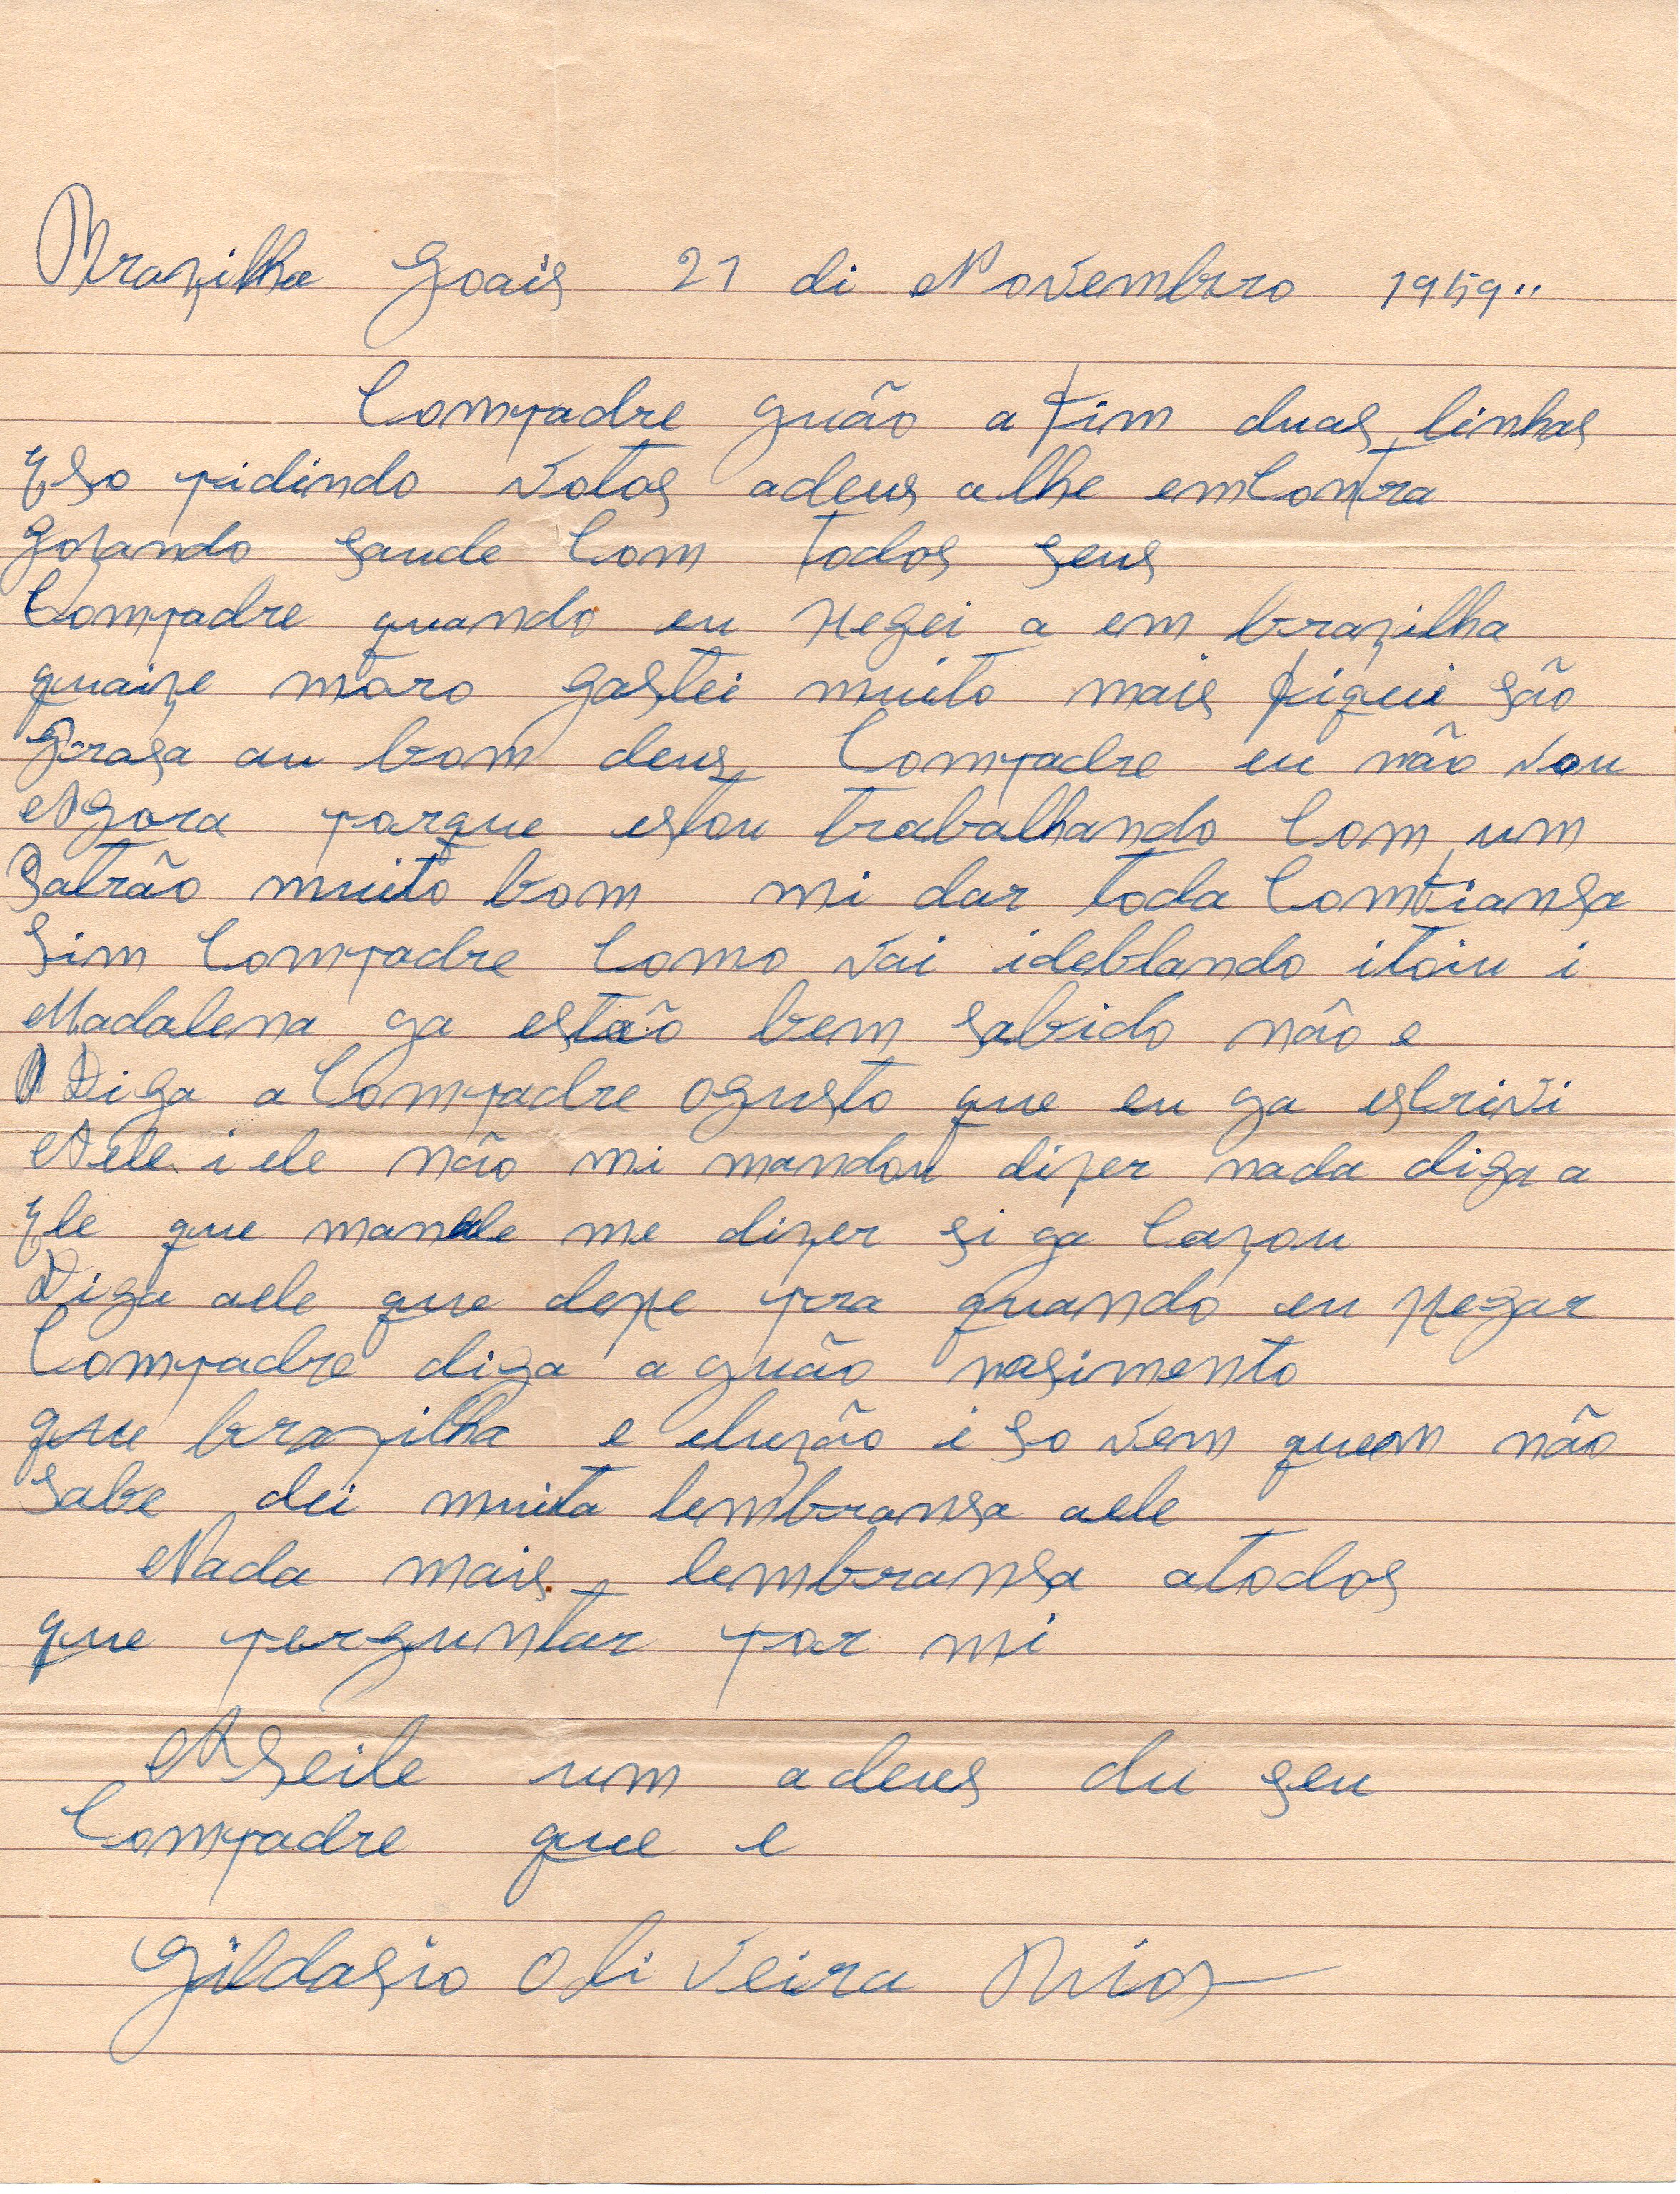 Brazilha Goais 21 di Novembro 1959"
Compadre guão a fim duas linhas
Eso pidindo votos adeus alhe emContra
gozando saude Com todos seus
Compadre quando eu xegei a em brazilha
quaize moro gastei muito mais fiquei são
Grasa au bom deus Compadre eu não vou
Agora porque estou trabalhando Com um
Patrão muito bom mi dar toda Comfiansa
Sim Compadre Como vai ideblando itoiu i
Madalena ga estão bem sabido não e
Diga a Compadre ogusto que eu ga escrivi
Aele i ele não mi mandou dizer nada diga a
Ele que mande me dizer si ga Cazou
Diga aele que dexe pra quando eu xegar
Compadre diga a guão nasimento
que brazilha e eluzão i so vem quem não
sabe dei muita lembransa aele
Nada mais lembransa atodos
que perguntar por mi
Aseite um adeus du seu
Compadre que e
Gildasio Oliveira Rios